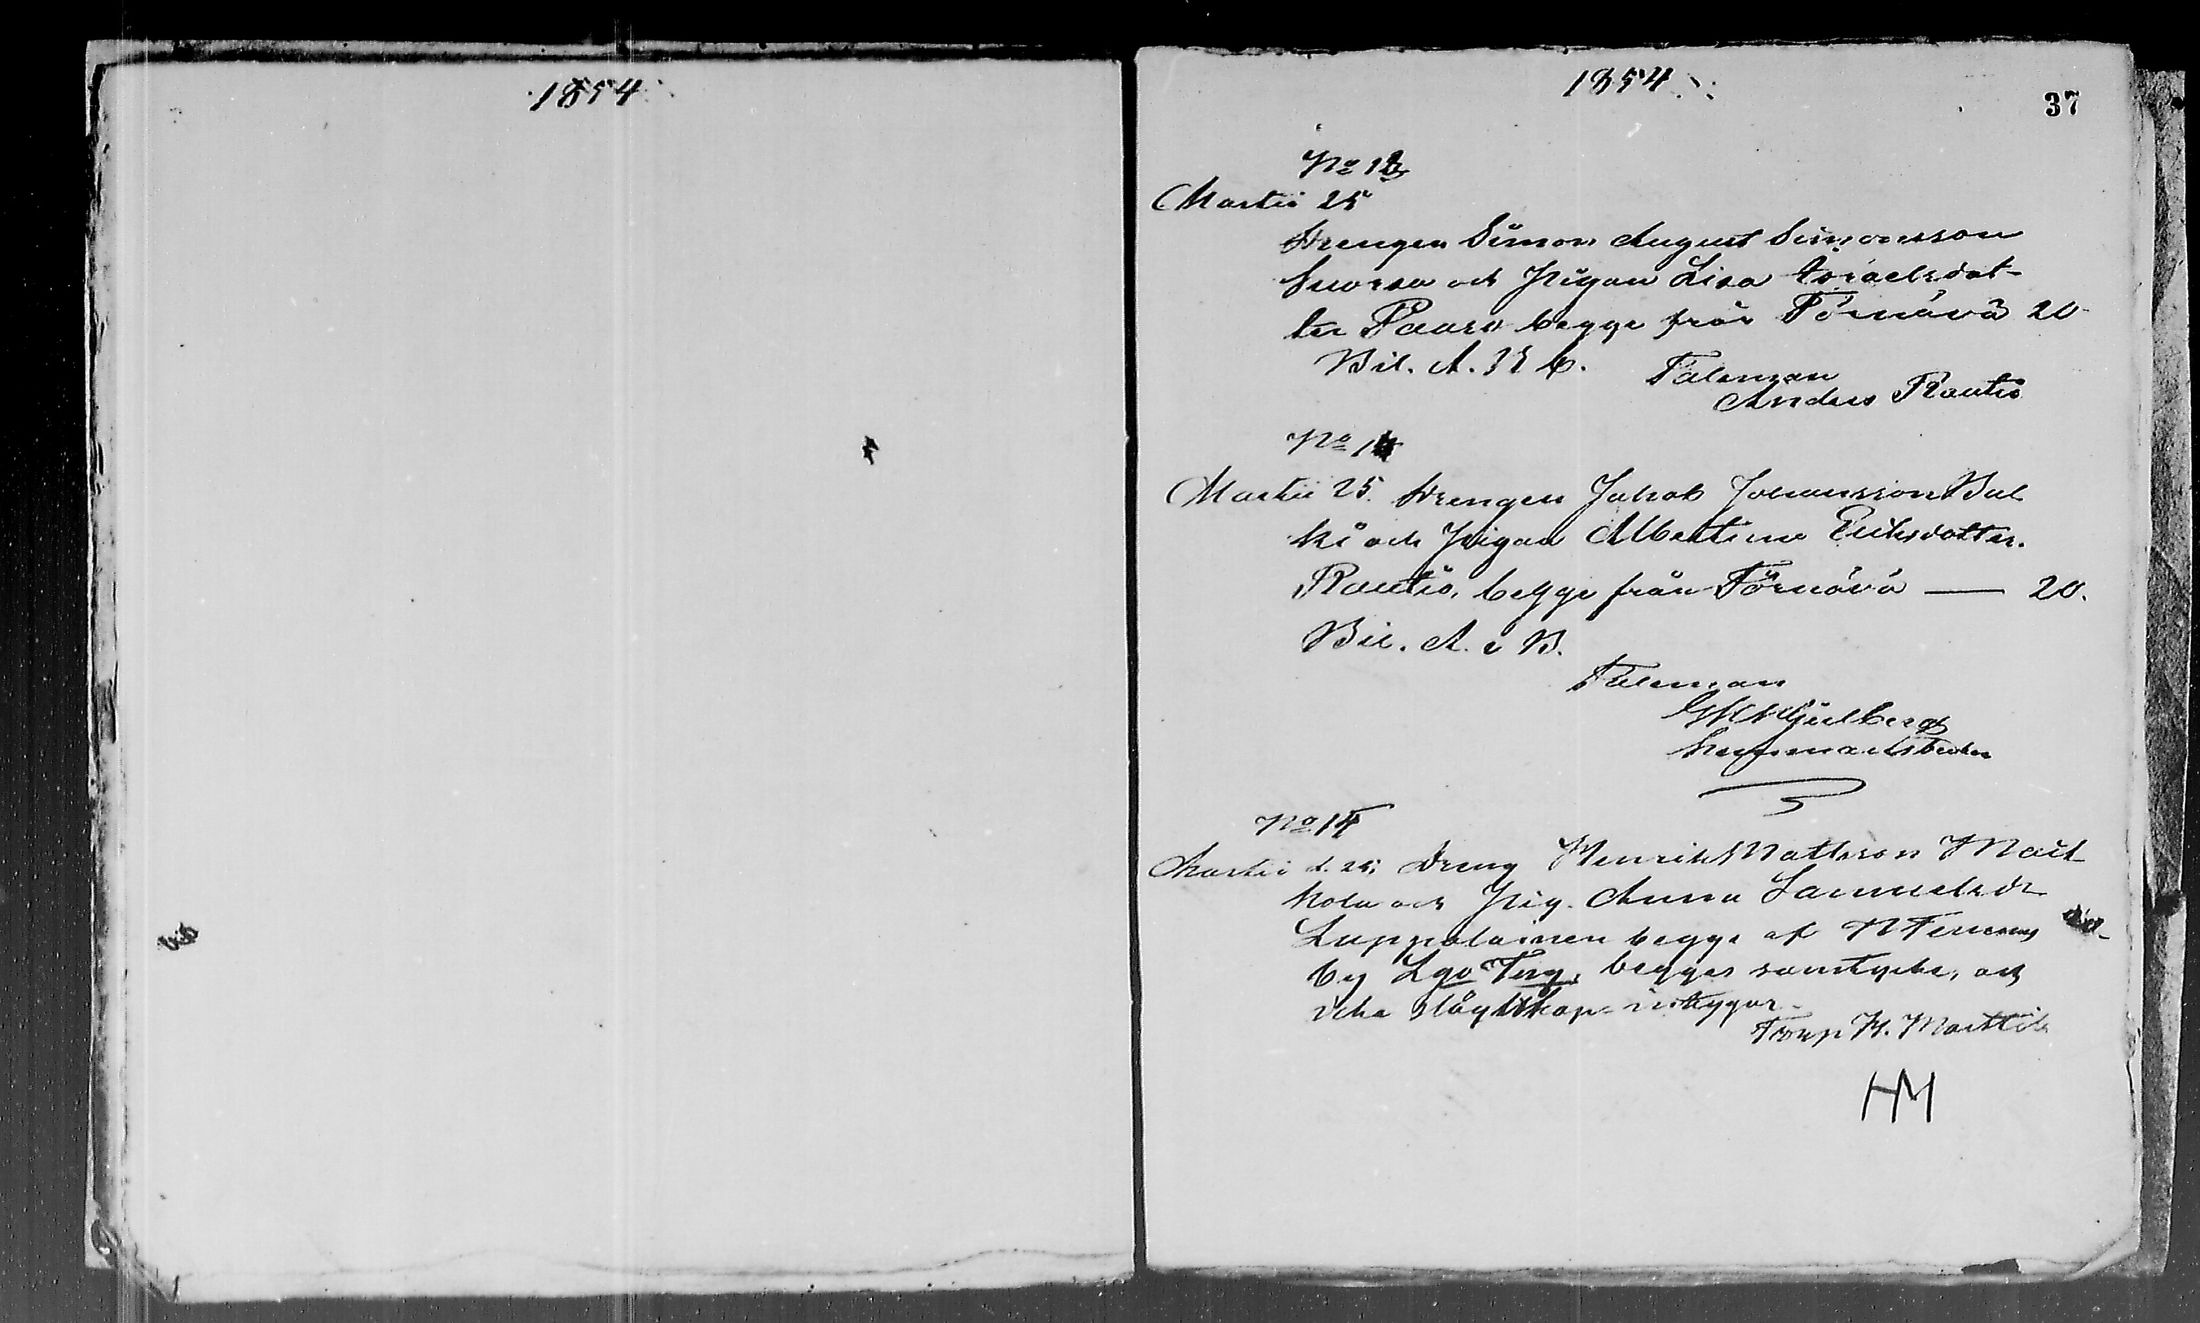 1854
1854
37
No 13
Martii 25
Drengen Simon August Simonsson
och Pigan Lisa Israelsdot-
ter Paavo begge från Törnävä 20
Bil. A. B C.
Taleman
Anders Rautio
No 14
Martii 25. Drengen Jakob Johansson Bul
ki och Pigan Albertina Eriksdotter
Rautio, begge från Törnävä — 20.
Bil. A. e B.
Taleman
No 15
Martii d. 25. Dreng Henrik Mattsson Mart
kola och Pig. Anna Samuelsdr
Luppolainen begge af
by begges samtycke, och
icke slägtskap intygar
H. Marttila
HM